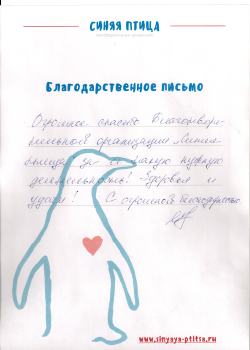 СИНЯЯ ПТИЦА
Благодарственное письмо
Огромное спасибо благотвори-
тельной организации „Синяя
птица" за её такую нужную
деятельность! Здоровья и
удачи! С огромной благодарностью
www.sinyaya-ptitsa.ru